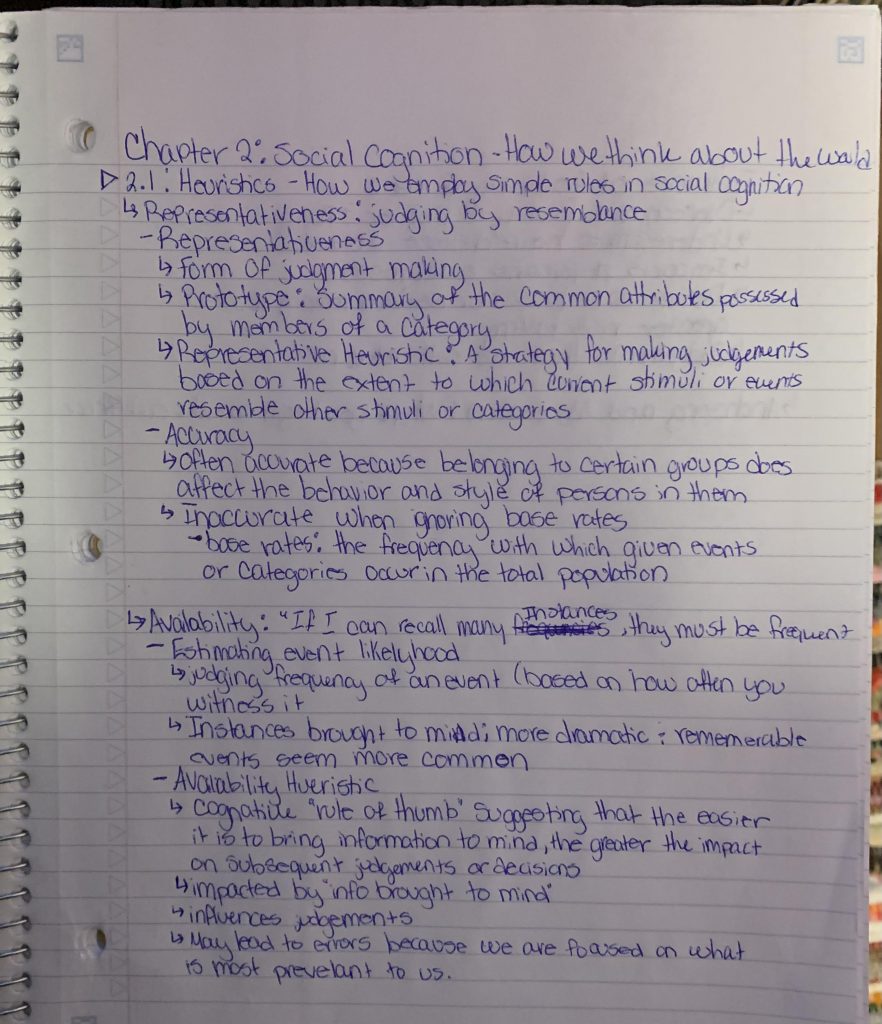 Chapter 2: Social Cognition - How we think about the world
▷ 2.1: Heuristics - How we employ simple rules in social cognition
↳ Representativeness: judging by resemblance
- Representativeness
↳ Form of judgment making
↳ Prototype: Summary of the common attributes possessed
by members of a category
↳ Representative Heuristic: A strategy for making judgements
based on the extent to which current stimuli or events
resemble other stimuli or categories
- Accuracy
↳ often accurate because belonging to certain groups does
affect the behavior and style of persons in them
↳ Inaccurate when ignoring base rates
- base rates: the frequency with which given events
or categories occur in the total population
↳ Availability: "If I can recall many Instances, they must be frequent
- Estimating event likelyhood
↳ judging frequency of an event (based on how often you
witness it
↳ Instances brought to mind; more dramatic : rememerable
events seem more common
- Availability Hueristic
↳ Cognative "rule of thumb" suggesting that the easier
it is to bring information to mind, the greater the impact
on subsequent judgements or decisions
↳ impacted by "info brought to mind"
↳ influences judgements
↳ May lead to errors because we are focused on what
is most prevelant to us.